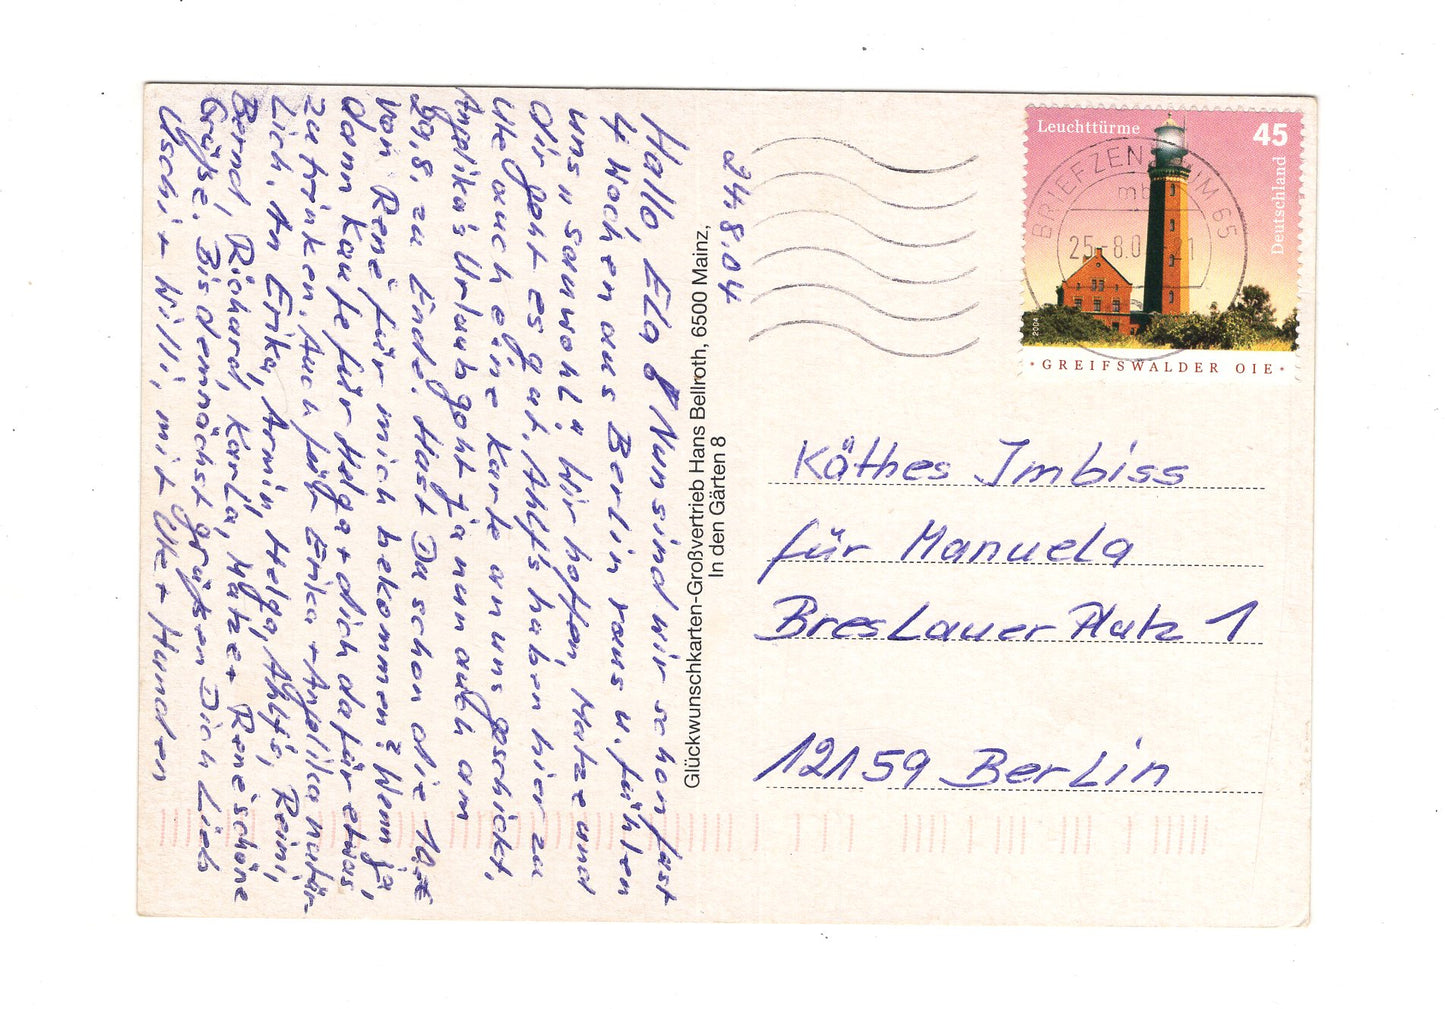 24.8.04
Hallo, Ela! Nun sind wir schon fast
4 Wochen aus Berlin raus u. fühlen
uns „sauwohl". Wir hoffen, Matze und
Dir geht es gut. Ahlf's haben hier zu
Ute auch eine Karte an uns geschickt,
Anplika's Urlaub geht ja nun auch am
29.8. zu Ende. Hast Du schon die 10,-€
von René für mich bekommen? Wenn ja,
dann kaufe für Helga + dich dafür etwas
zu trinken. Auch für Erika + Anplika natür-
lich. An Erika, Armin, Helga, Ahlf's, Reini,
Bernd, Richard, Karla, Matze + René schöne
Grüße. Bis demnächst grüßen Dich lieb
Uschi + Willi, mit Ute + Hunden
Glückwunschkarten-Großvertrieb Hans Bellroth, 6500 Mainz,
In den Gärten 8
Leuchttürme
45
Deutschland
BRIEFZENTRUM 65
mb
25.-8.0 21
GREIFSWALDER OIE
Käthes Imbiss
für Manuela
Breslauer Platz 1
12159 Berlin